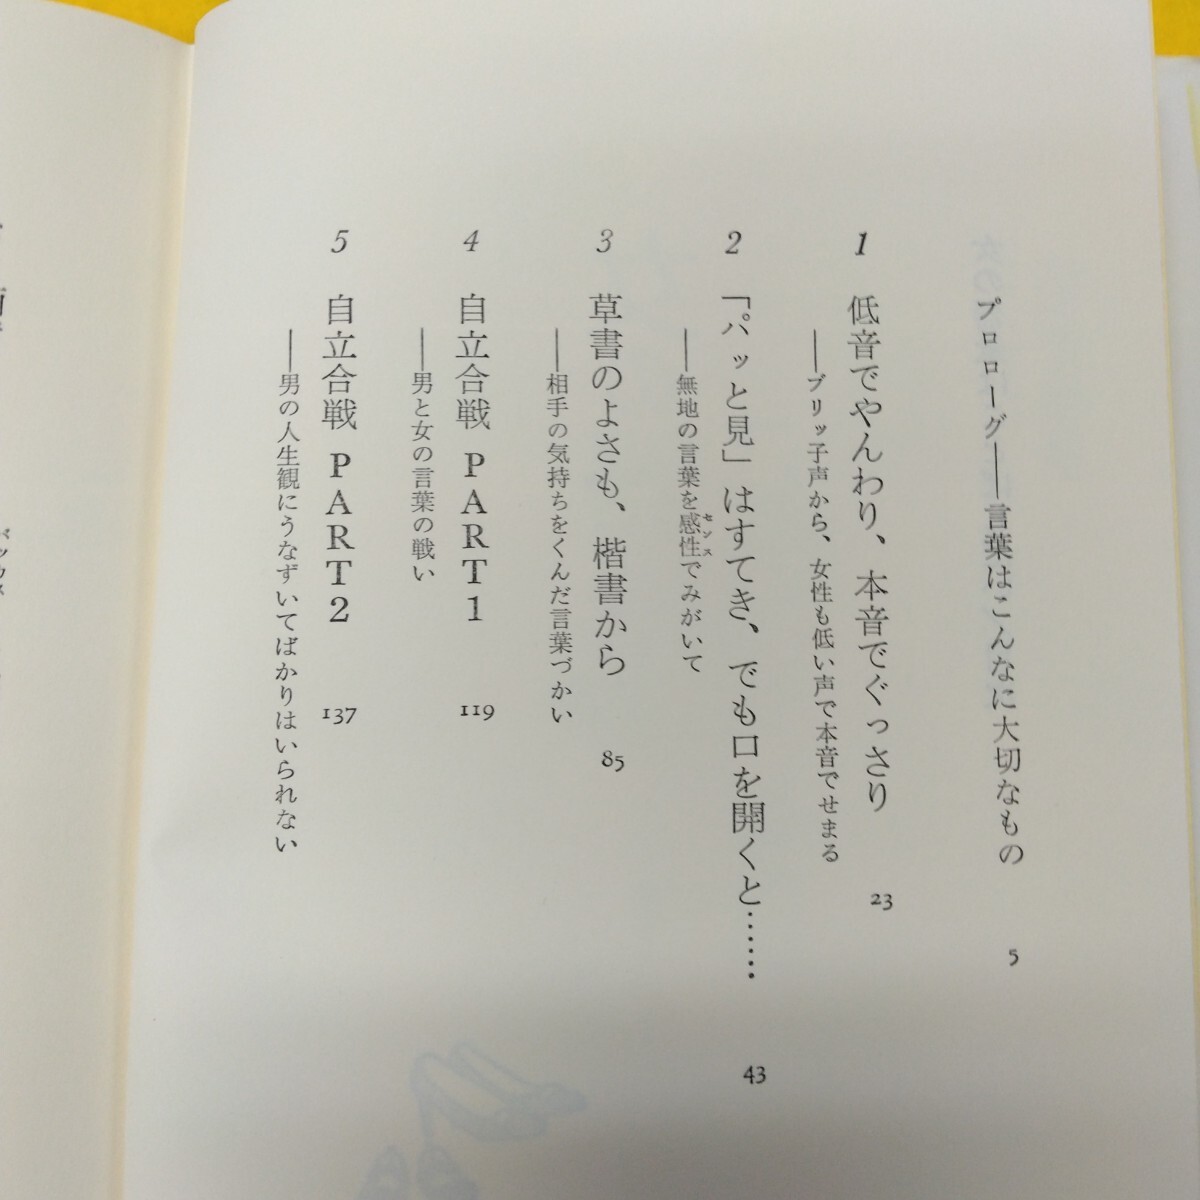 プロローグ——言葉はこんなに大切なもの 5
1 低音でやんわり、本音でぐっさり 23
——ブリッ子声から、女性も低い声で本音でせまる
2 「パッと見」はすてき、でも口を開くと…… 43
——無地の言葉を感性でみがいて
センス
3 草書のよさも、楷書から 85
——相手の気持ちをくんだ言葉づかい
4 自立合戦 PART1 119
——男と女の言葉の戦い
5 自立合戦 PART2 137
——男の人生観にうなずいてばかりはいられない
バッカス